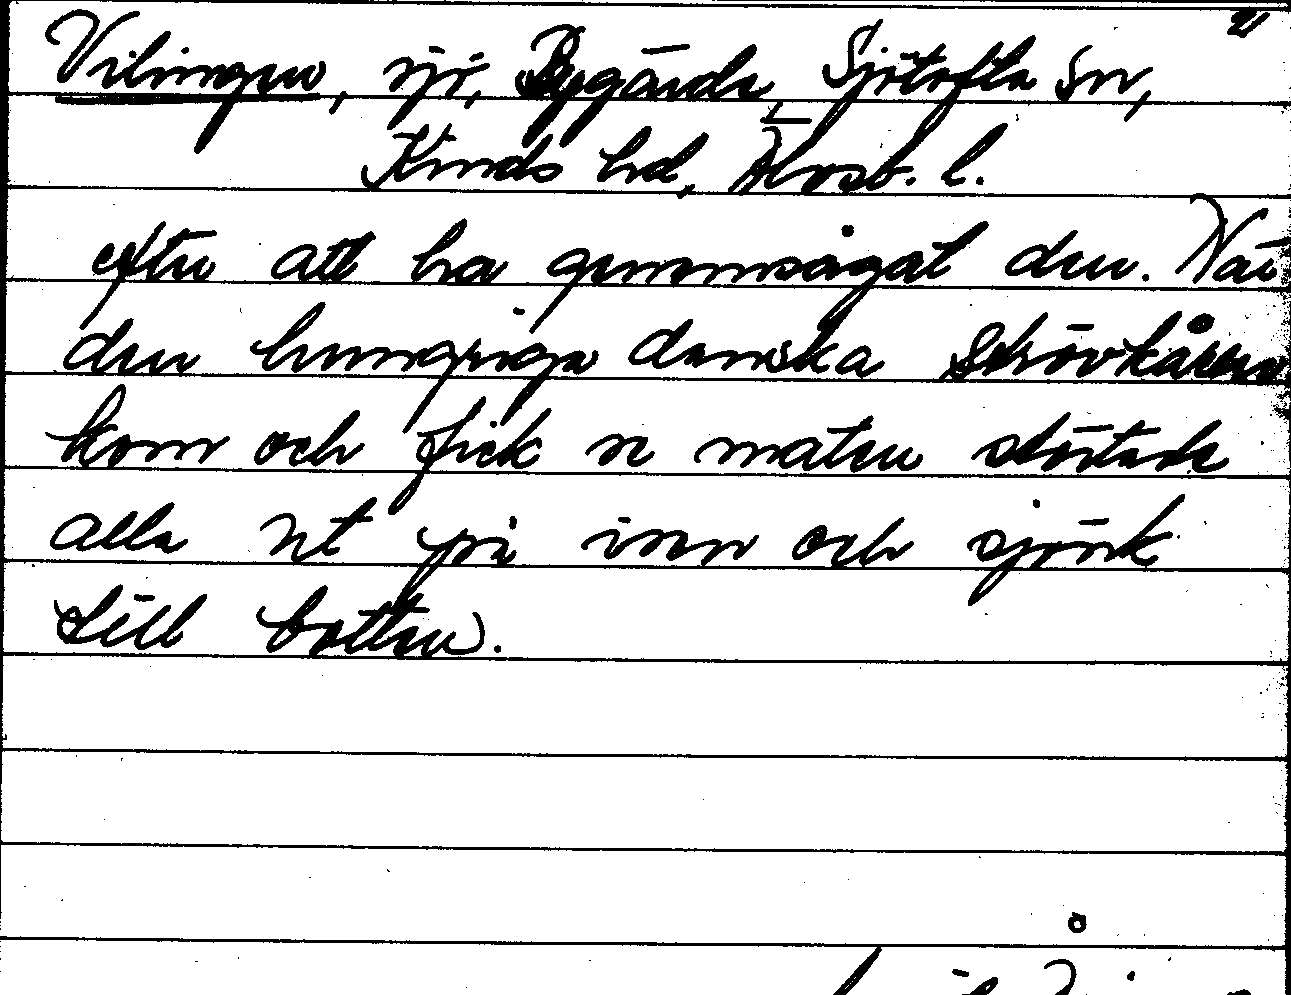 2/
Vilingen, sjö, Bygärde, Sjötofta sn,
Kinds hd, Älvsb. l.
efter att ha genomsågat den. När
den hungriga danska strövkåren
kom och fick se maten störtade
alla ut på isen och sjönk
till botten.